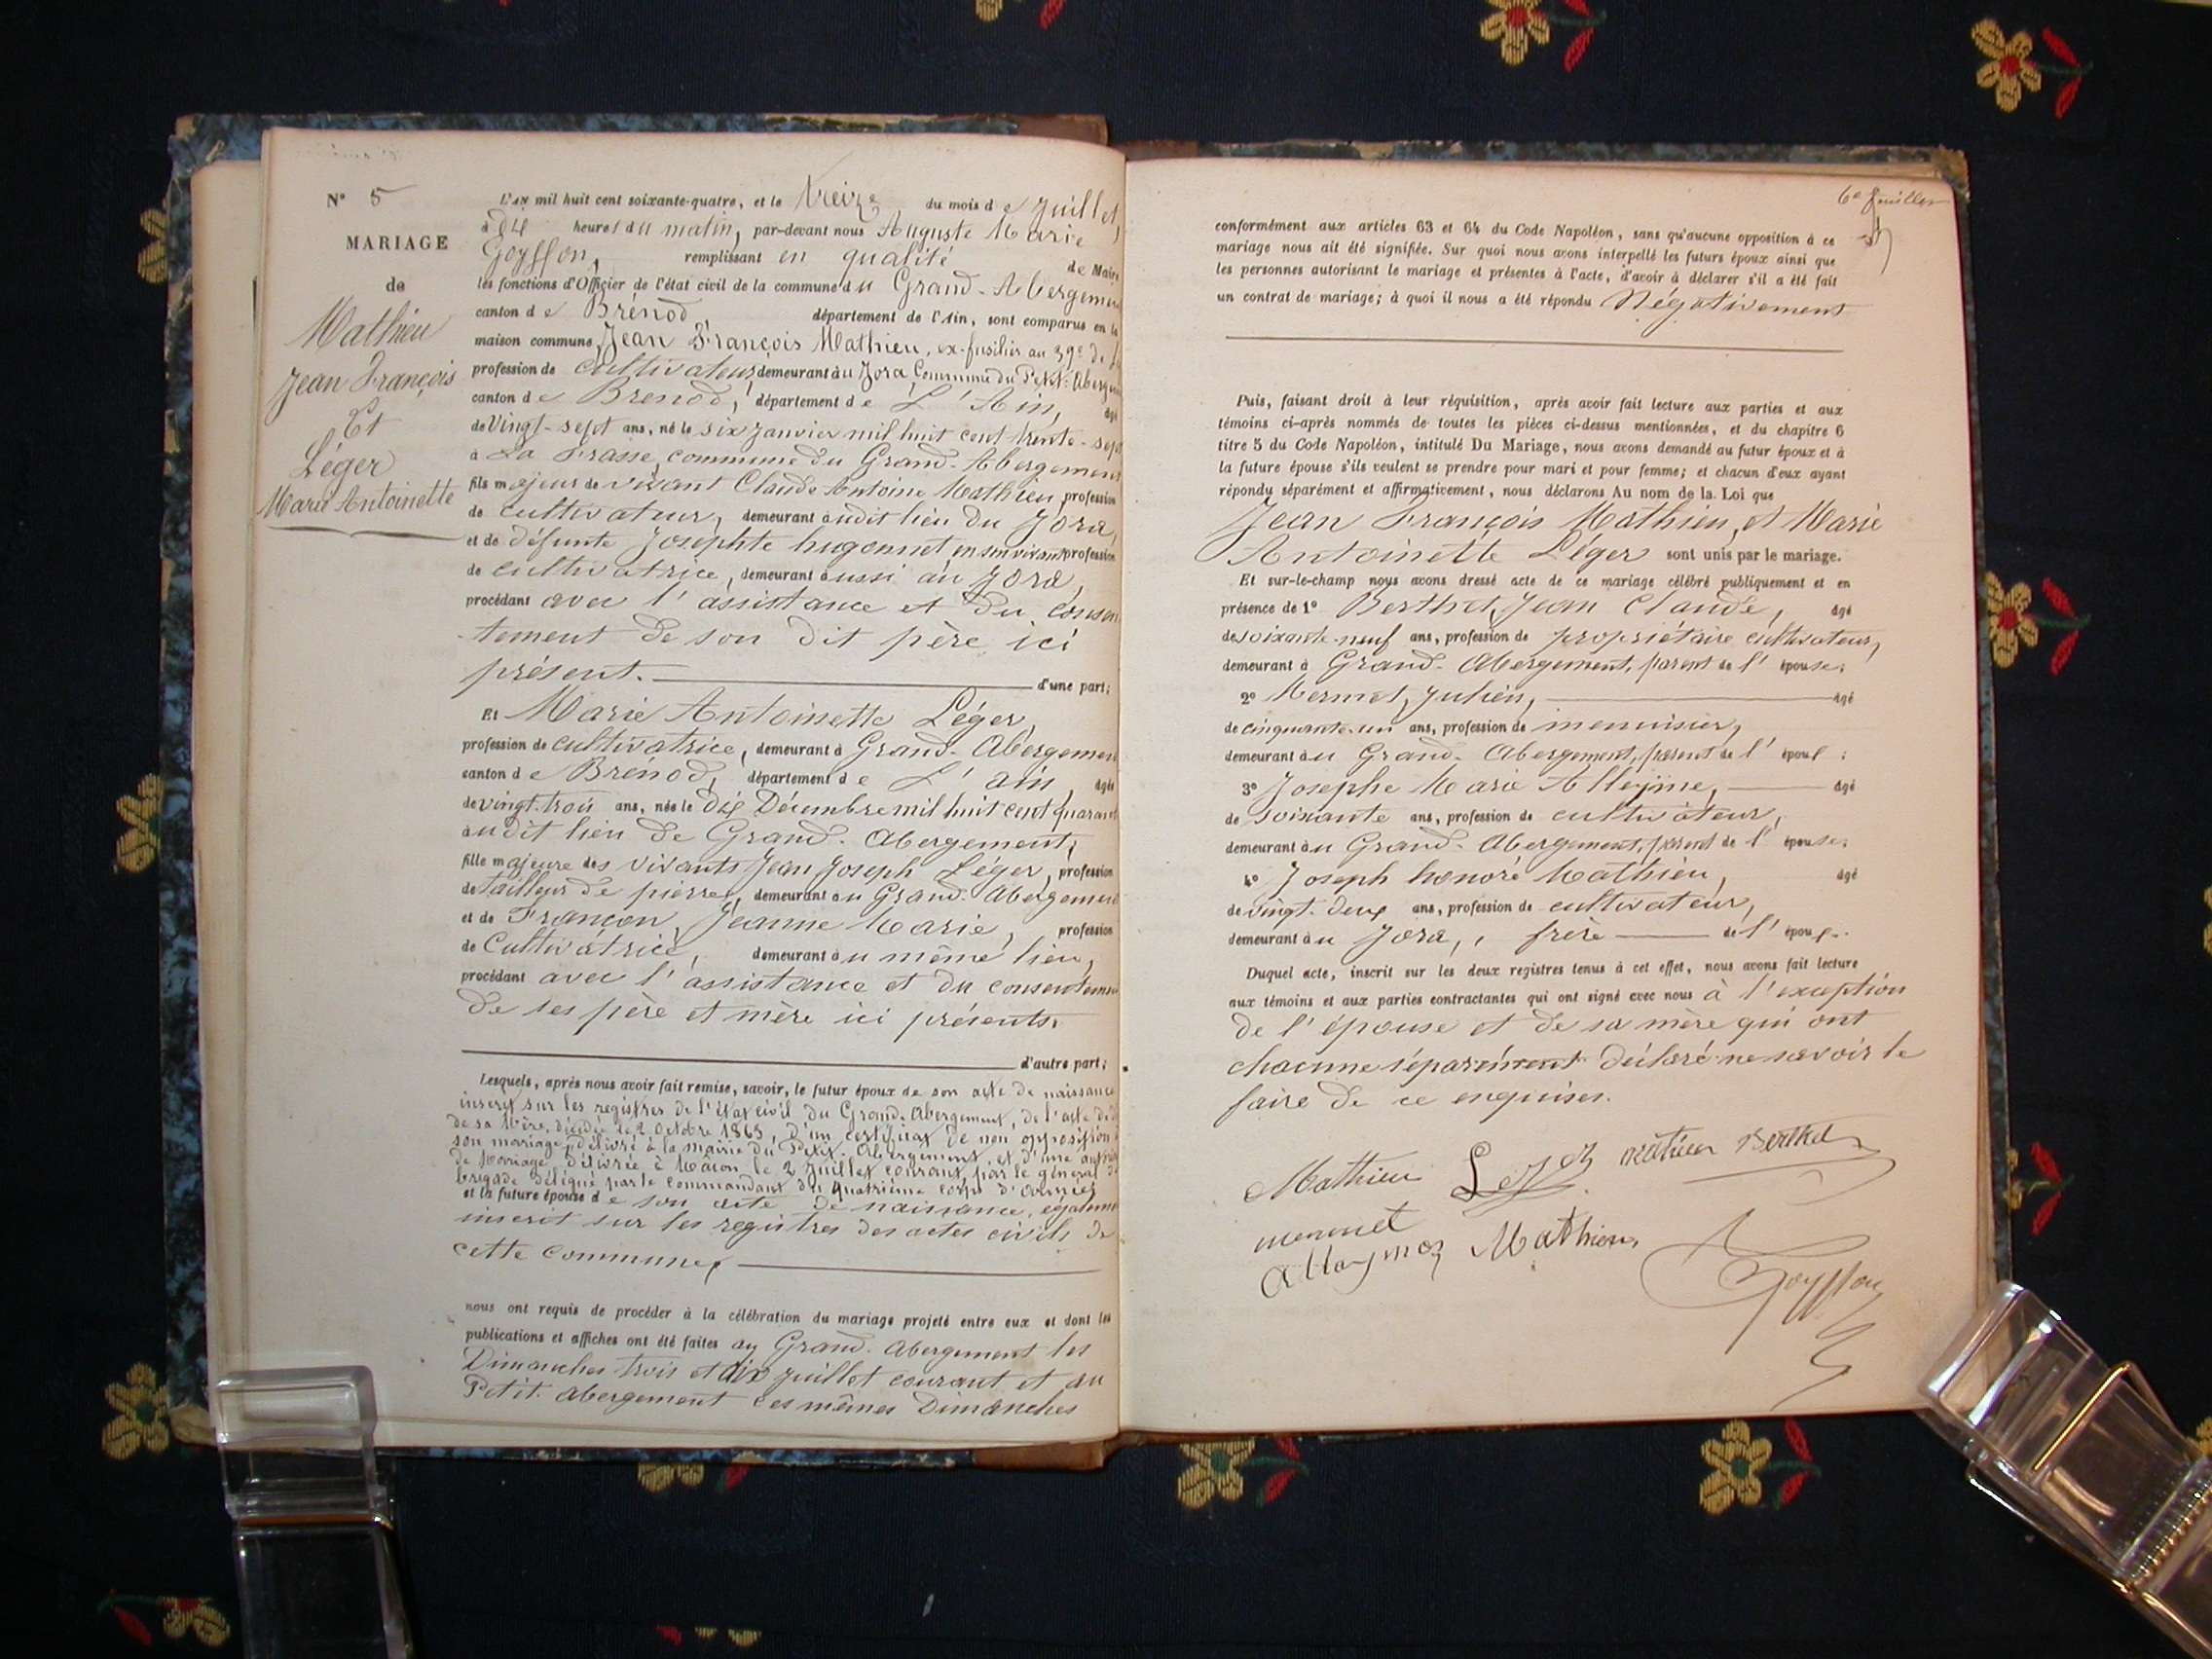 N° 5
MARIAGE
de
Mathieu
Jean François
Et
Léger
Marie Antoinette
L'an mil huit cent soixante-quatre, et le treize du mois de juillet,
à dix heures du matin, par-devant nous Auguste Marie
Goyffon, remplissant en qualité de Maire
les fonctions d'Officier de l'état civil de la commune du Grand-Abergement
canton de Brénod, département de l'Ain, sont comparus en la
maison commune, Jean François Mathieu, ex-fusilier au 39e de
profession de cultivateur, demeurant au Jora, Commune du Petit-Aberg
canton de Brénod, département de L'Ain, âgé
de vingt-sept ans, né le six janvier mil huit cent trente-sept
à La Frasse, commune du Grand-Abergement
fils majeur de vivant Claude Antoine Mathieu, profession
de cultivateur, demeurant audit lieu du Jora,
et de défunte Josephte hugonnet en son vivant profession
de cultivatrice, demeurant aussi au Jora,
procédant avec l'assistance et du consen
tement de son dit père ici
présent. d'une part;
Et Marie Antoinette Léger,
profession de cultivatrice, demeurant à Grand-Abergemen
canton de Brénod, département de L'ain, âgée
de vingt-trois ans, née le dix Décembre mil huit cent quarante
audit lieu de Grand-Abergement,
fille majeure des vivants Jean Joseph Léger, profession
de tailleur de pierres, demeurant au Grand-Abergement
et de Françon, Jeanne Marie, profession
de Cultivatrice, demeurant au même lieu,
procédant avec l'assistance et du consenteme
de ses père et mère ici présents.
d'autre part;
Lesquels, après nous avoir fait remise, savoir, le futur époux de son acte de naissance
inscrit sur les registres de l'état civil du Grand-Abergement, de l'acte de d
de sa Mère, décédée le 2 Octobre 1863, d'un certificat de non opposition à
son mariage, délivré à la mairie du Petit-Abergement et d'une
de Mariage délivrée à Mâcon le 2 juillet courant par le général de
brigade délégué par le Commandant du quatrième corps d'armée;
et la future épouse de son acte de naissance, égaleme
inscrit sur les registres des actes civils de
cette commune,
nous ont requis de procéder à la célébration du mariage projeté entre eux et dont les
publications et affiches ont été faites au Grand-Abergement les
Dimanches trois et dix juillet courant et au
Petit-Abergement les mêmes Dimanches
6e feuillet
conformément aux articles 63 et 64 du Code Napoléon, sans qu'aucune opposition à ce
mariage nous ait été signifiée. Sur quoi nous avons interpellé les futurs époux ainsi que
les personnes autorisant le mariage et présentes à l'acte, d'avoir à déclarer s'il a été fait
un contrat de mariage; à quoi il nous a été répondu Négativement
Puis, faisant droit à leur réquisition, après avoir fait lecture aux parties et aux
témoins ci-après nommés de toutes les pièces ci-dessus mentionnées, et du chapitre 6
titre 5 du Code Napoléon, intitulé Du Mariage, nous avons demandé au futur époux et à
la future épouse s'ils veulent se prendre pour mari et pour femme; et chacun d'eux ayant
répondu séparément et affirmativement, nous déclarons Au nom de la Loi que
Jean François Mathieu, et Marie
Antoinette Léger sont unis par le mariage.
Et sur-le-champ nous avons dressé acte de ce mariage célébré publiquement et en
présence de 1° Berthet, Jean Claude, âgé
de soixante-neuf ans, profession de propriétaire cultivateur,
demeurant à Grand-Abergement, parent de l'épouse;
2° Mermet, Julien, âgé
de cinquante-un ans, profession de menuisier,
demeurant au Grand-Abergement, parent de l'époux;
3° Josephe Marie Alleyme, âgé
de soixante ans, profession de cultivateur,
demeurant au Grand-Abergement, parent de l'épouse;
4° Joseph honoré Mathieu, âgé
de vingt-deux ans, profession de cultivateur,
demeurant au Jora, frère de l'époux.
Duquel acte, inscrit sur les deux registres tenus à cet effet, nous avons fait lecture
aux témoins et aux parties contractantes qui ont signé avec nous à l'exception
de l'épouse et de sa mère qui ont
chacune séparément déclaré ne savoir le
faire de ce enquises.
Mathieu Leger mathieu Berthet
mermet
Mathieu
Goyffon